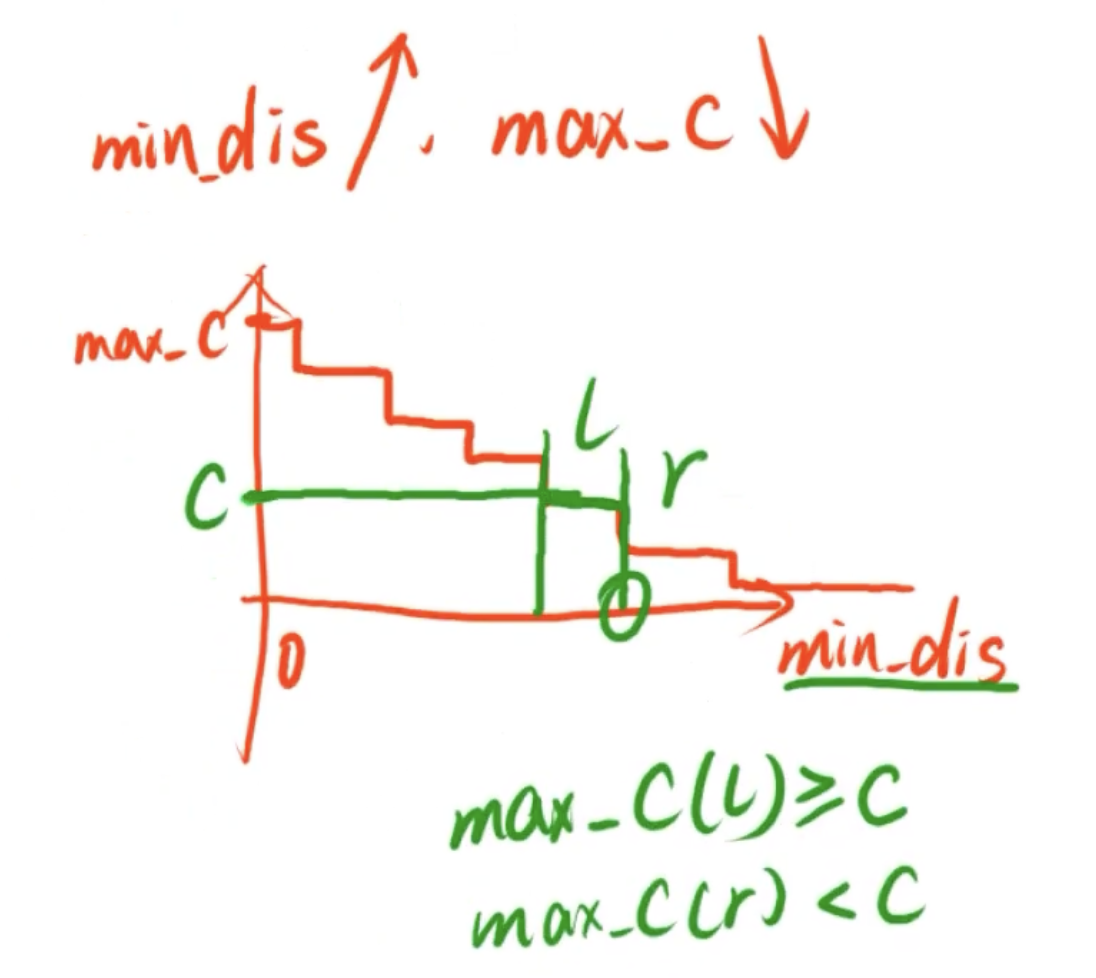 min_dis ↑, max_C ↓
max_C
l
r
C
0
min_dis
max_C(l)≥C
max_C(r)<C